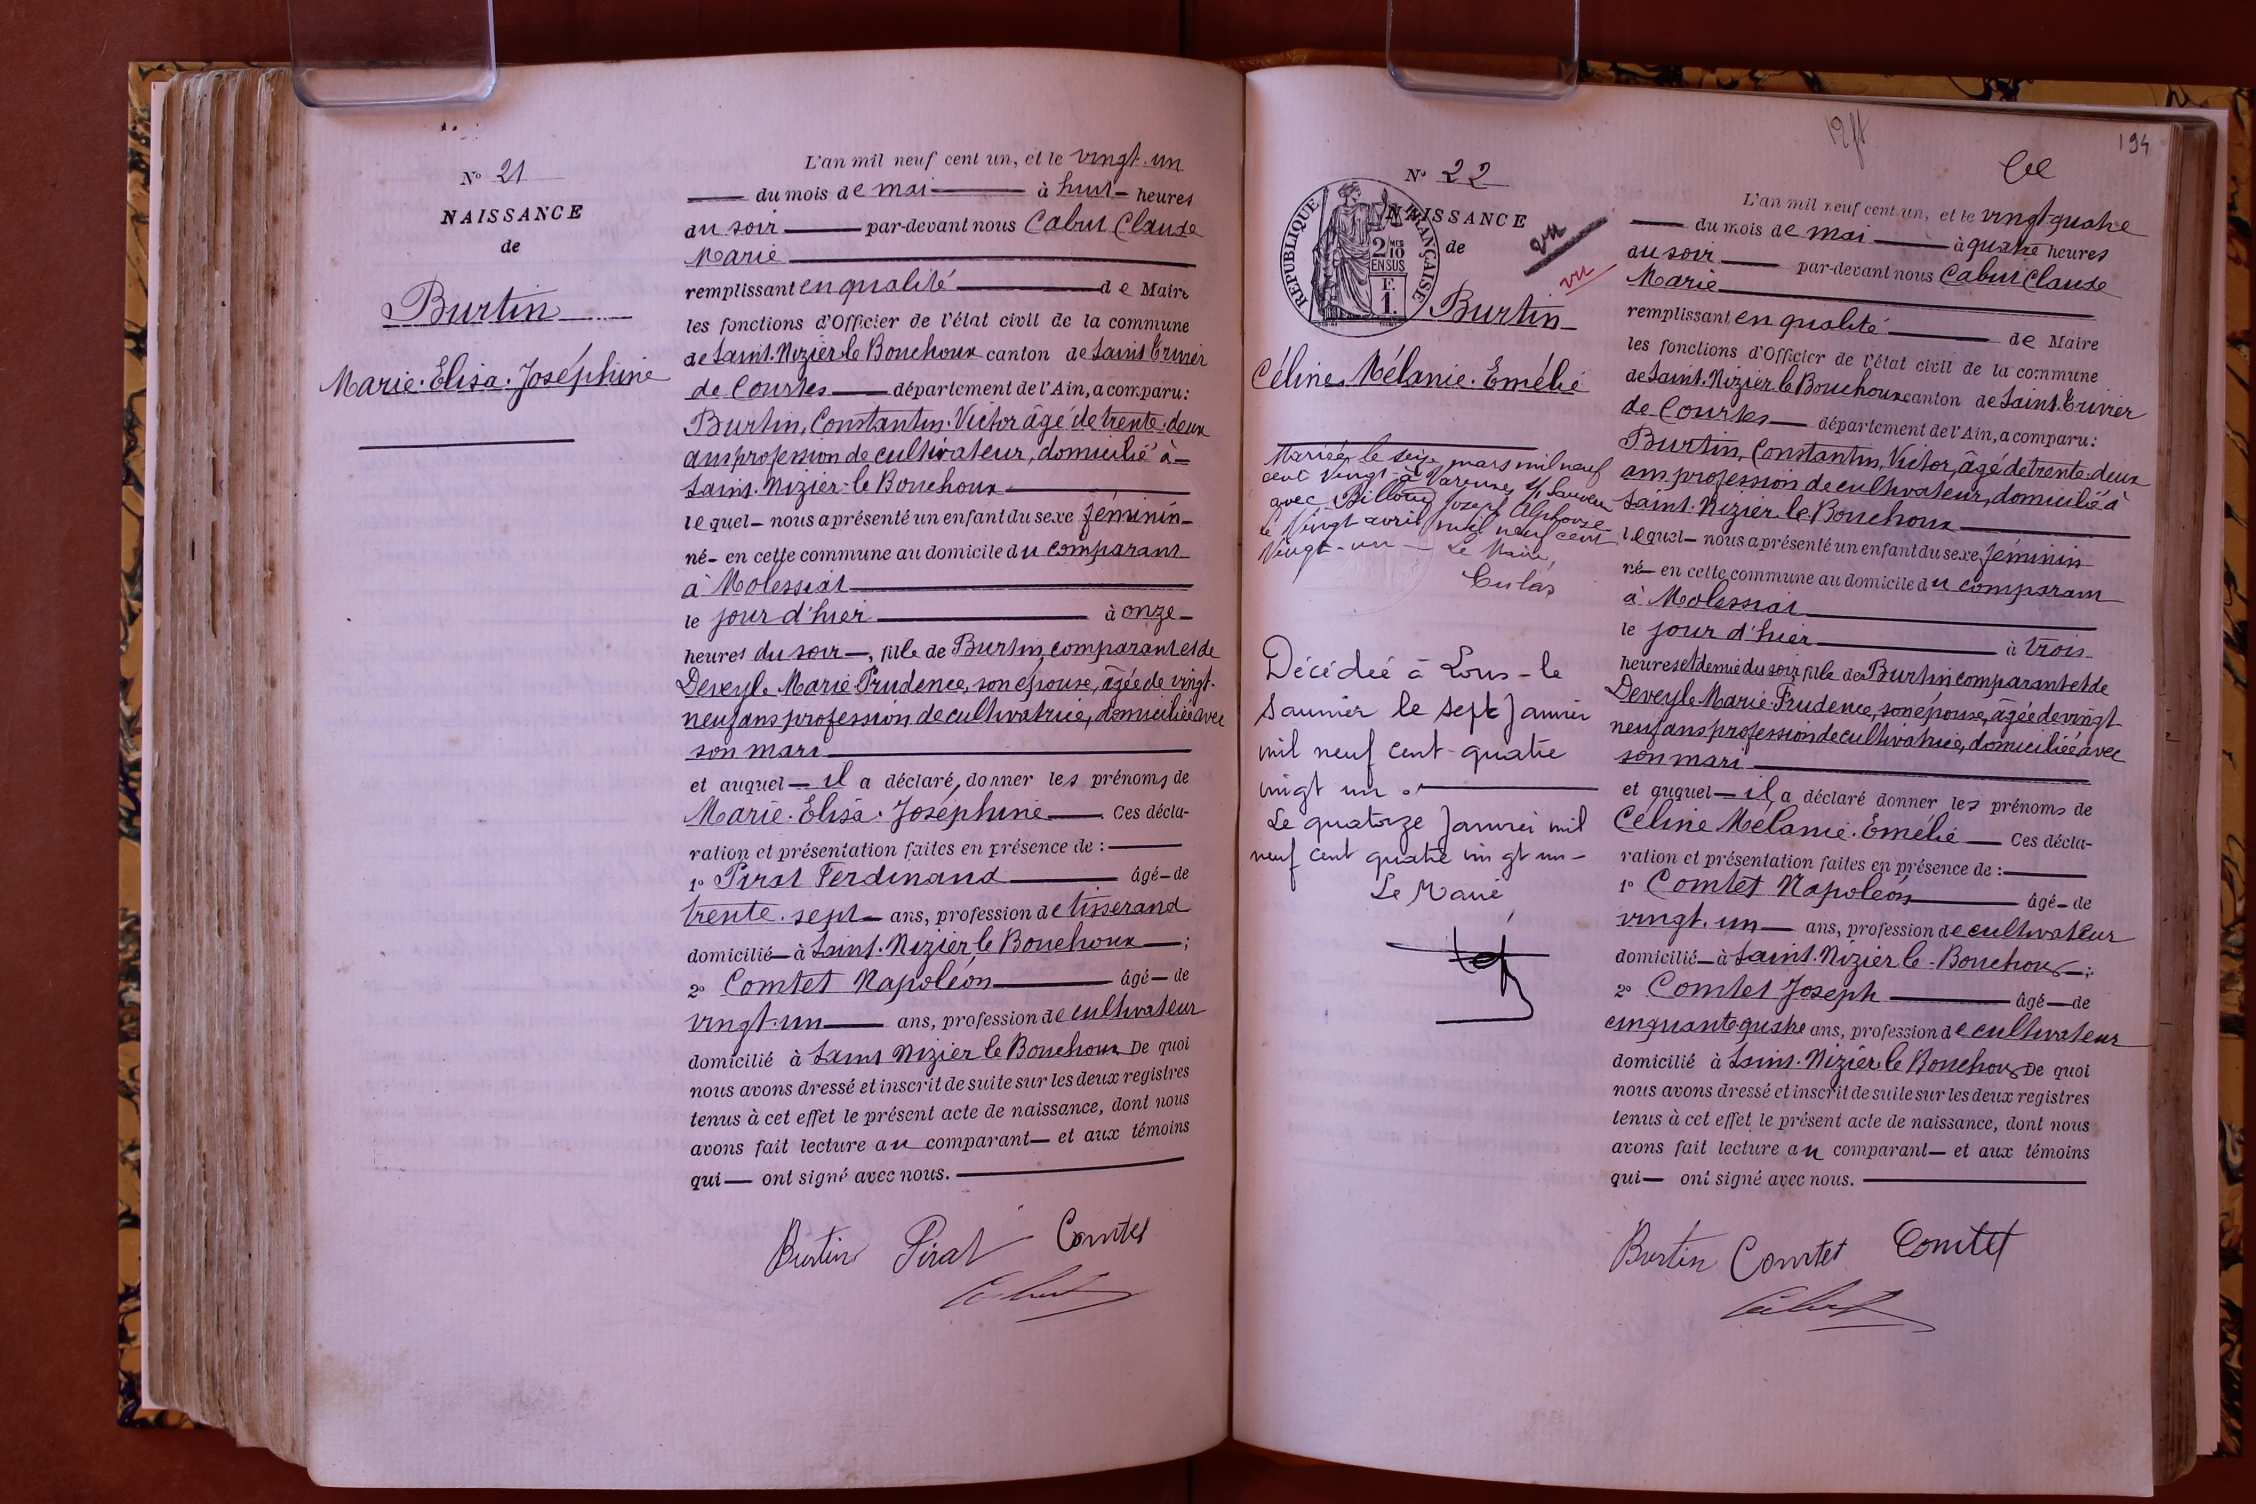 N° 21
NAISSANCE
de
Burtin
Marie. Elisa. Joséphine
L'an mil neuf cent un, et le vingt-un
du mois de mai à huit heures
du soir par-devant nous Cabut Claude
Marie
remplissant en qualité de Maire
les fonctions d'Officier de l'état civil de la commune
de Saint. Nizier le Bouchoux canton de Saint Trivier
de Courtes département de l'Ain, a comparu:
Burtin, Constantin. Victor âgé de trente. deux
ans profession de cultivateur, domicilié à
Saint. Nizier-le Bouchoux
lequel nous a présenté un enfant du sexe féminin
né en cette commune au domicile du comparant
à Molessiat
le jour d'hier à onze
heures du soir, fille de Burtin, comparant et de
Deveyle Marie Prudence, son épouse, âgée de vingt.
neuf ans profession de cultivatrice, domiciliée avec
son mari
et auquel il a déclaré donner les prénoms de
Marie. Elisa. Joséphine Ces décla-
ration et présentation faites en présence de :
1° Pirat Ferdinand âgé de
trente. sept ans, profession de tisserand
domicilié à Saint. Nizier le Bouchoux ;
2° Comtet Napoléon âgé de
vingt. un ans, profession de cultivateur
domicilié à Saint Nizier le Bouchoux De quoi
nous avons dressé et inscrit de suite sur les deux registres
tenus à cet effet le présent acte de naissance, dont nous
avons fait lecture au comparant et aux témoins
qui ont signé avec nous.
Burtin Pirat Comtet
Cabut
194
N° 22
NAISSANCE
de
RÉPUBLIQUE FRANÇAISE
2 MES
10
EN SUS
F.
1.
vu
vu
Burtin
Céline. Mélanie. Emélie
Mariée le seize mars mil neuf
cent vingt à Varennes St Sauveur
avec Billoux Joseph Alphonse
Le Vingt avril mil neuf cent
Vingt-un Le Maire,
Décédée à Lons-le
Saunier le sept Janvier
mil neuf cent-quatre
vingt un.
Le quatorze Janvier mil
neuf cent quatre vingt un-
Le Maire
L'an mil neuf cent un, et le vingt-quatre
du mois de mai à quatre heures
du soir par-devant nous Cabut Claude
Marie
remplissant en qualité de Maire
les fonctions d'Officier de l'état civil de la commune
de Saint. Nizier le Bouchoux canton de Saint. Trivier
de Courtes département de l'Ain, a comparu:
Burtin, Constantin, Victor, âgé de trente. deux
ans profession de cultivateur, domicilié à
Saint. Nizier. le. Bouchoux
lequel nous a présenté un enfant du sexe féminin
né en cette commune au domicile du comparant
à Molessiat
le jour d'hier à trois
heures et demie du soir fille de Burtin comparant et de
Deveyle Marie-Prudence, son épouse, âgée de vingt
neuf ans profession de cultivatrice, domiciliée avec
son mari
et auquel il a déclaré donner les prénoms de
Céline Mélanie. Emélie Ces décla-
ration et présentation faites en présence de :
1° Comtet Napoléon âgé de
vingt. un ans, profession de cultivateur
domicilié à Saint. Nizier le-Bouchoux ;
2° Comtet Joseph âgé de
cinquante quatre ans, profession de cultivateur
domicilié à Saint. Nizier. le Bouchoux De quoi
nous avons dressé et inscrit de suite sur les deux registres
tenus à cet effet le présent acte de naissance, dont nous
avons fait lecture au comparant et aux témoins
qui ont signé avec nous.
Burtin Comtet Comtet
Cabut